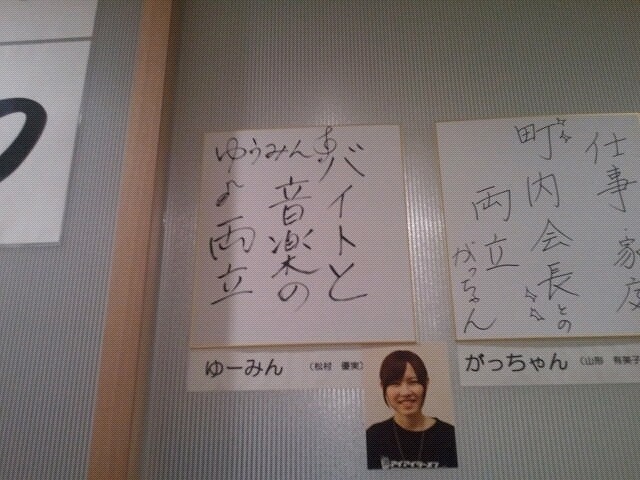 バイトと
音楽の
両立
ゆうみん
ゆーみん
(松村 優実)
仕事 家庭
町内会長との
両立
がっちゃん
がっちゃん
(山形 有美子